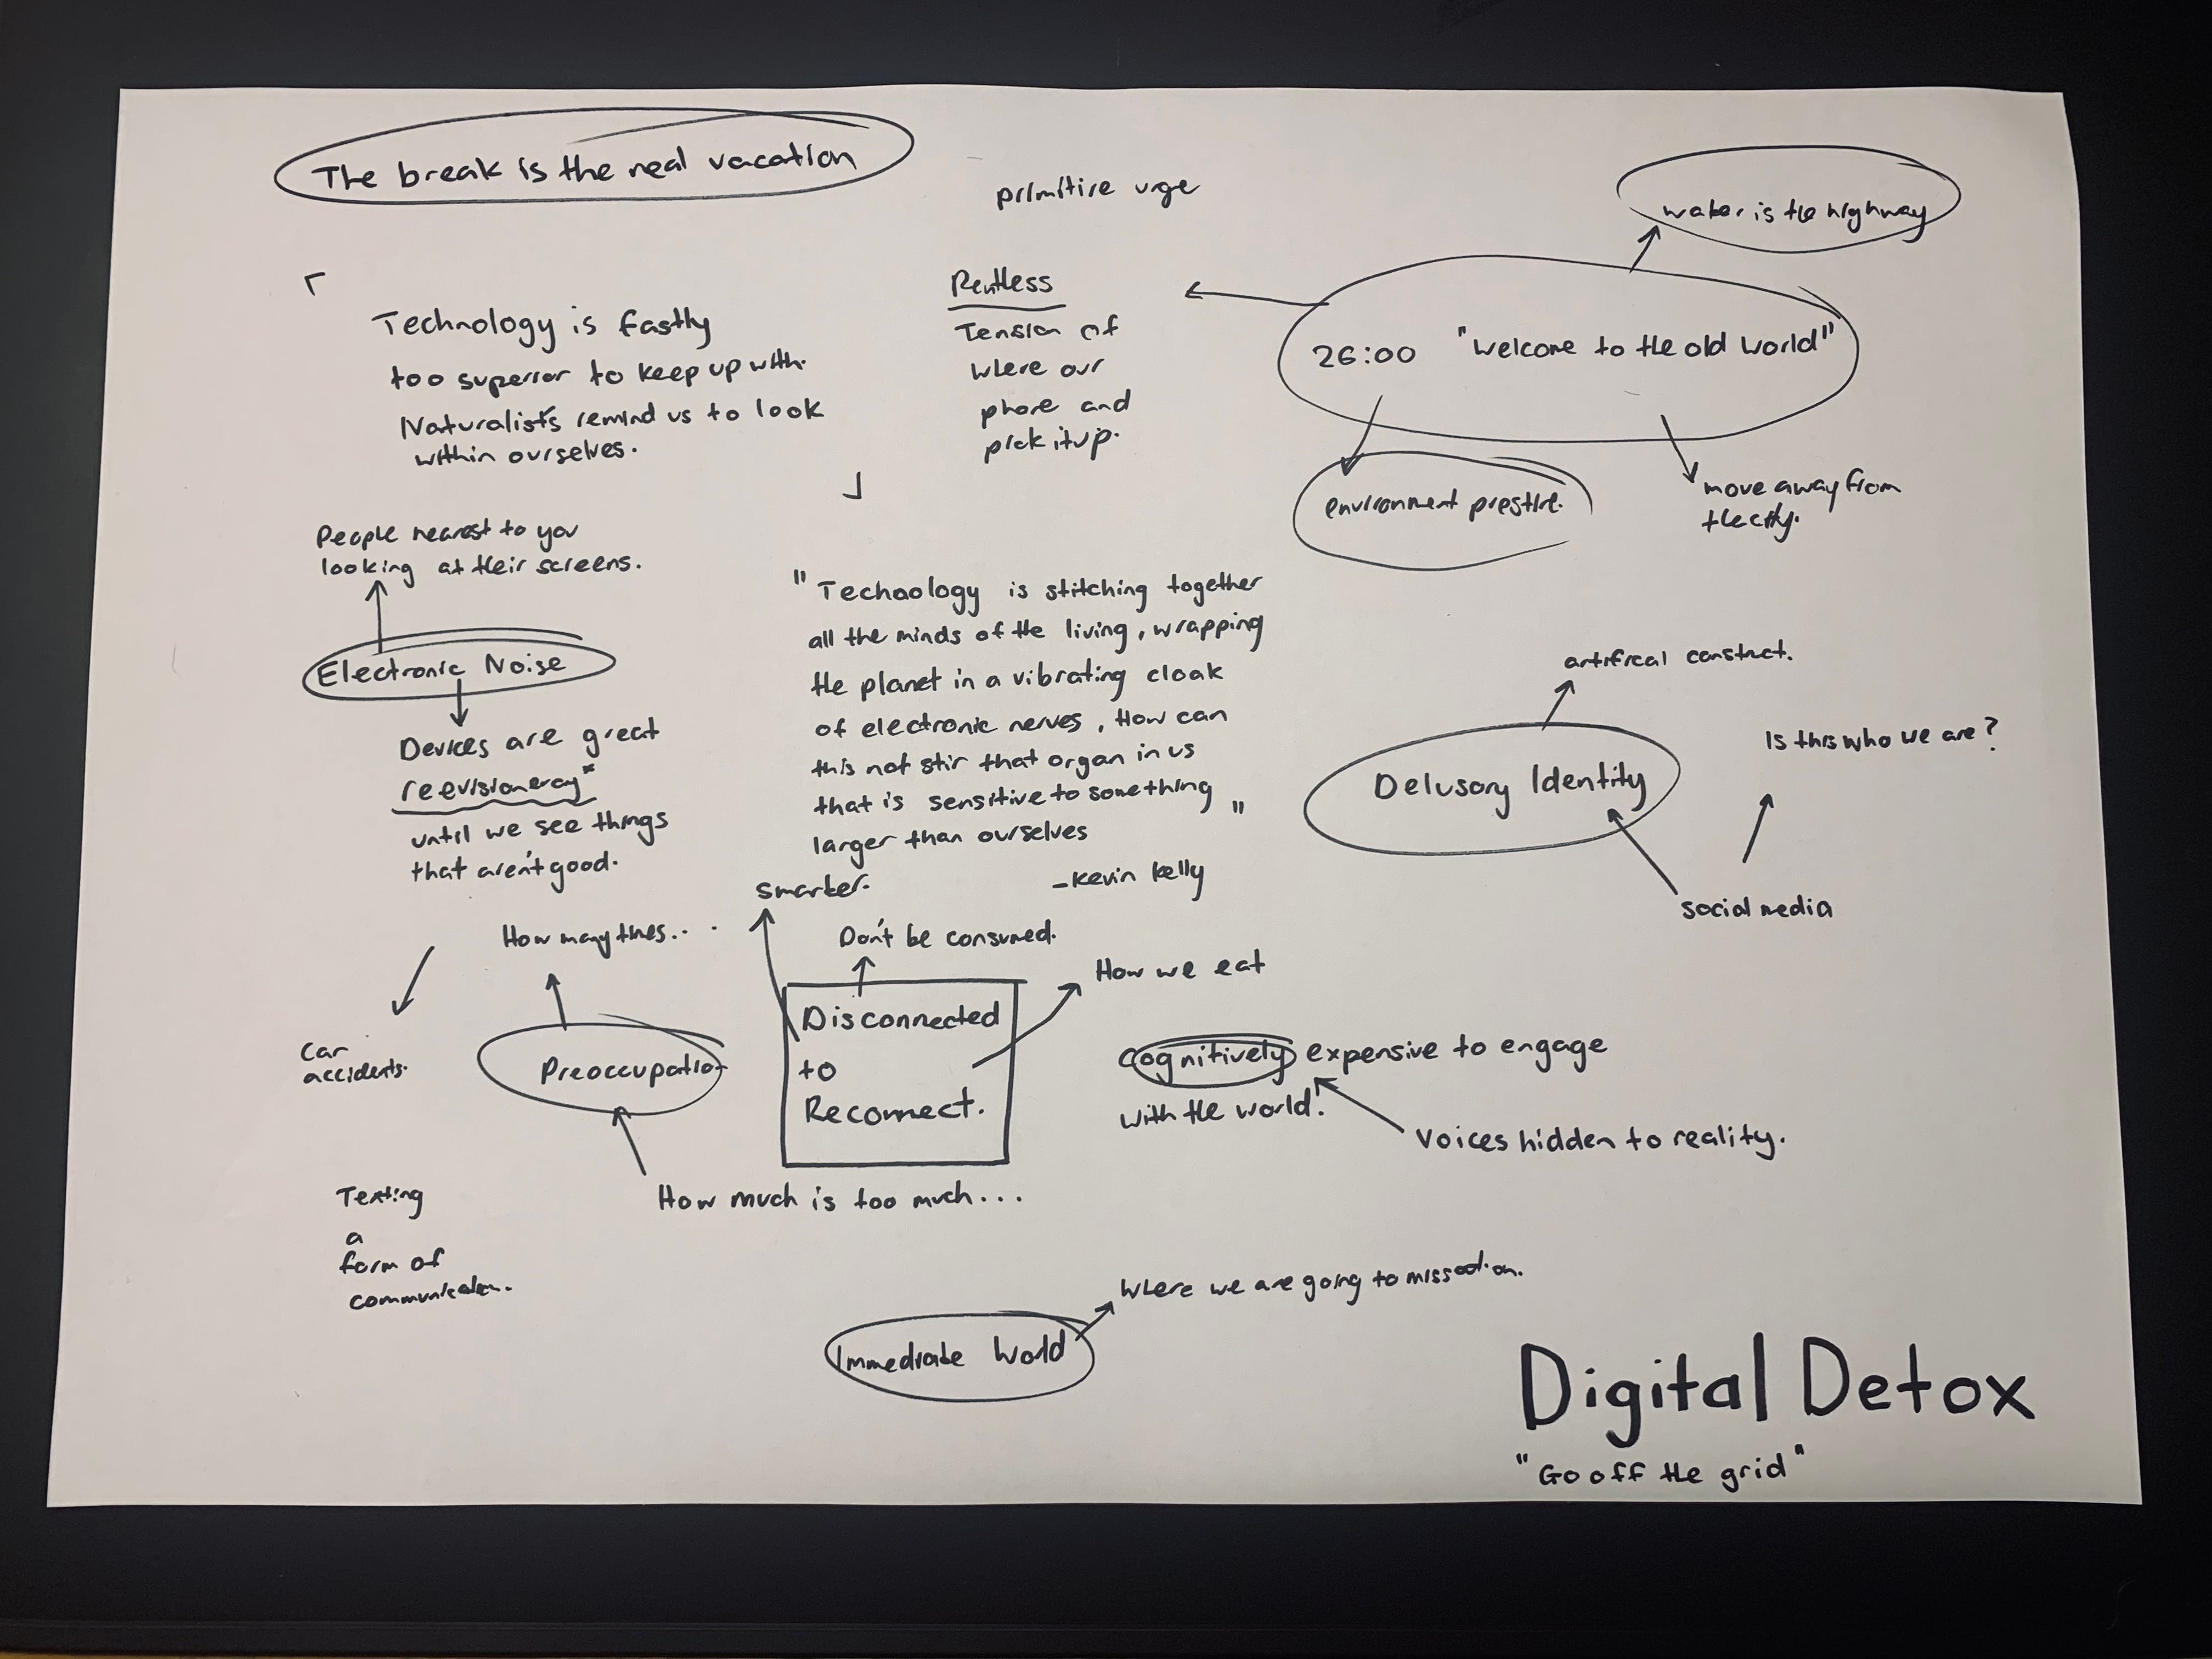 The break is the real vacation
primitive urge
water is the highway
Rentless
Tension of
where our
phone and
pick it up.
26:00 "welcome to the old world"
environment pristine.
move away from
the city.
Technology is fastly
too superior to keep up with.
Naturalists remind us to look
within ourselves.
People nearest to you
looking at their screens.
Electronic Noise
Devices are great
reevisioneray*
until we see things
that aren't good.
"Technology is stitching together
all the minds of the living, wrapping
the planet in a vibrating cloak
of electronic nerves, How can
this not stir that organ in us
that is sensitive to something
larger than ourselves"
-Kevin Kelly
artifical construct.
Delusory Identity
Is this who we are?
social media
smarter.
Don't be consumed.
How we eat
Disconnected
to
Reconnect.
How many times...
Preoccupation
How much is too much...
Car
accidents.
Texting
a
form of
communication.
cognitively expensive to engage
with the world!
Voices hidden to reality.
Where we are going to miss out on.
Immediate World
Digital Detox
"Go off the grid"